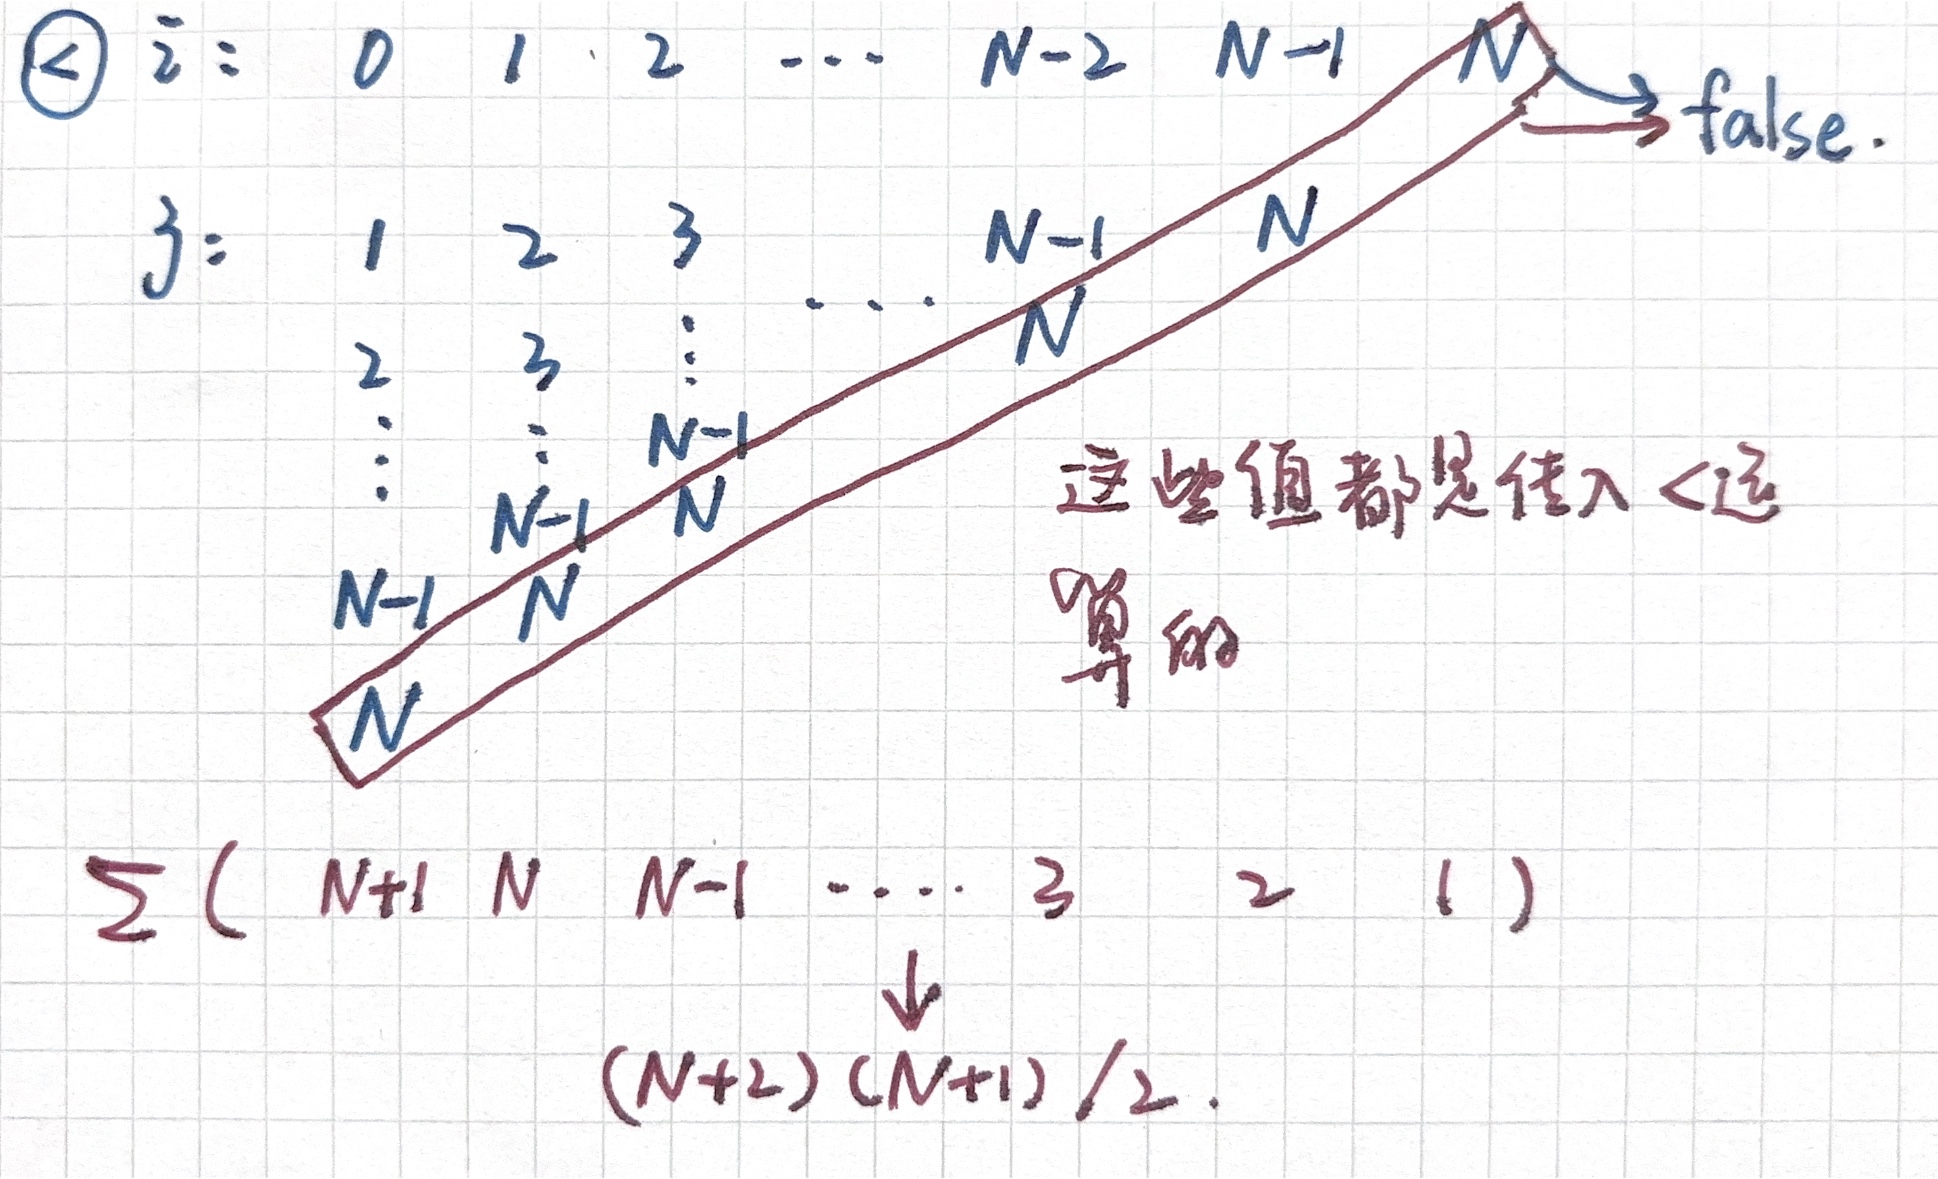 < i: 0 1 2 ... N-2 N-1 N
false.
j: 1 2 3 ... N-1 N
2 3 ⋮ N
⋮ ⋮ N-1
N-1 N
N-1 N
N
这些值都是传入<运
算的
Σ( N+1 N N-1 ···· 3 2 1 )
↓
(N+2)(N+1)/2.